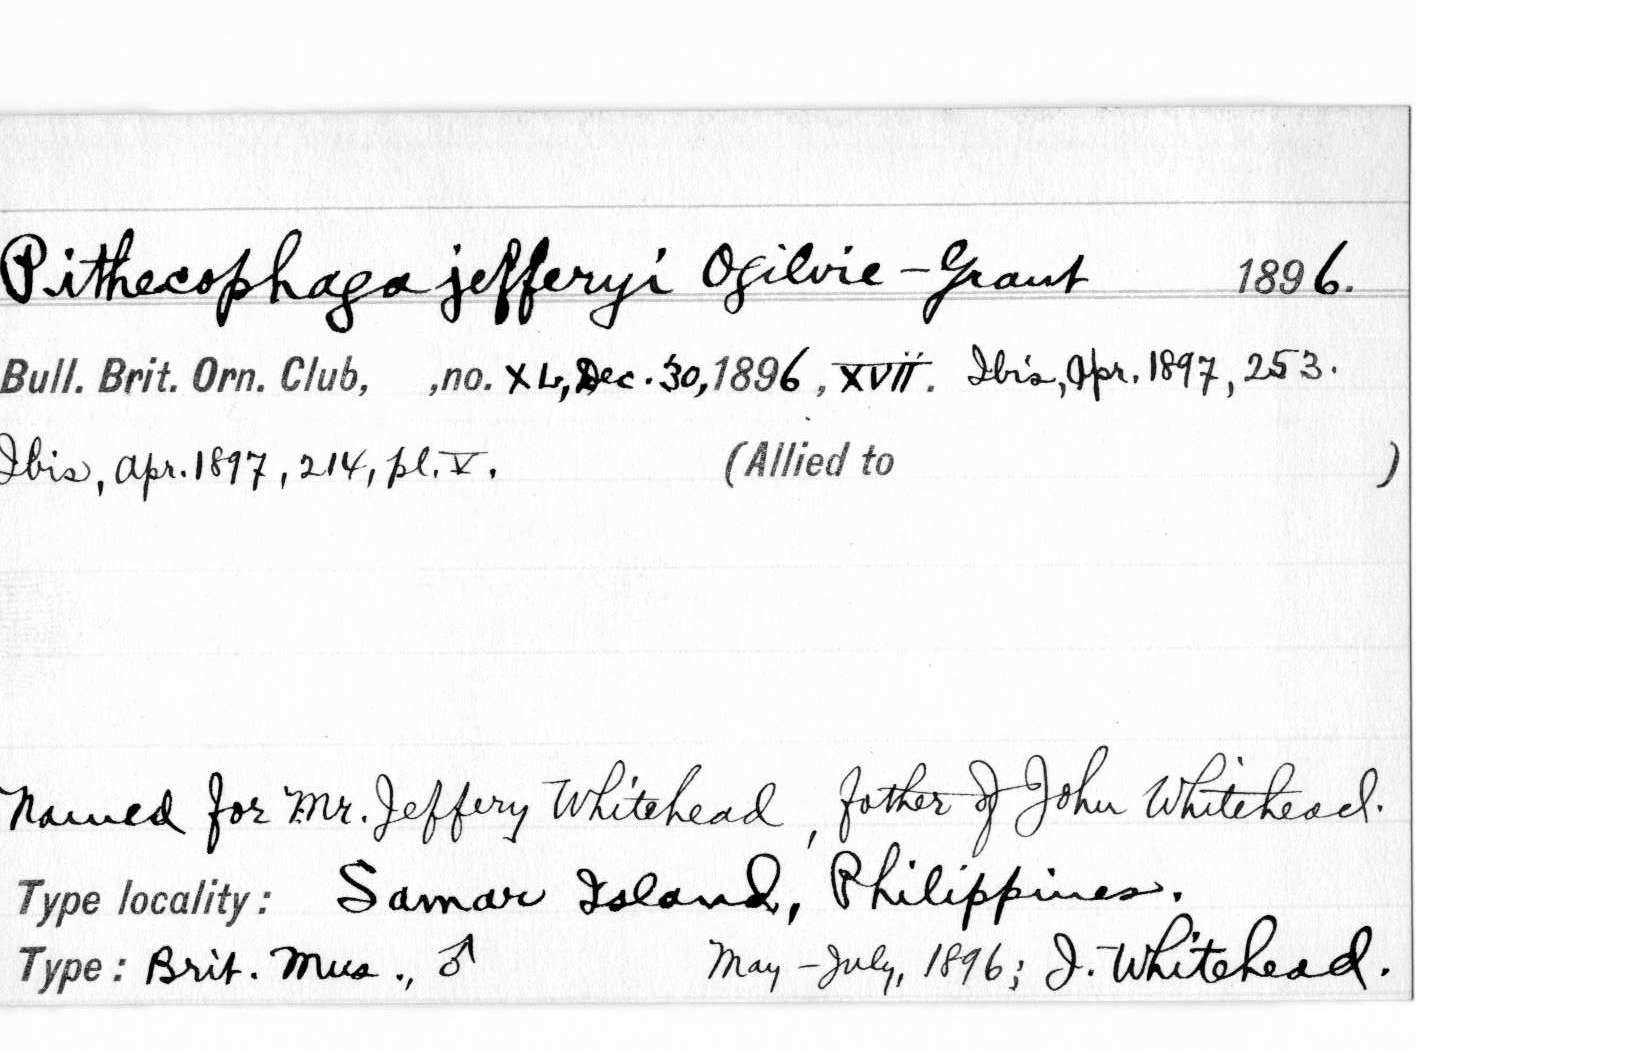 Pithecophaga jefferyi Ogilvie-Grant 1896.
Bull. Brit. Orn. Club, ,no. XL, Dec. 30, 1896, XVII. Ibis, Apr. 1897, 253.
Ibis, Apr. 1897, 214, pl. V. (Allied to )
Named for Mr. Jeffery Whitehead, father of John Whitehead.
Type locality: Samar Island, Philippines.
Type: Brit. Mus., ♂ May-July, 1896; J. Whitehead.